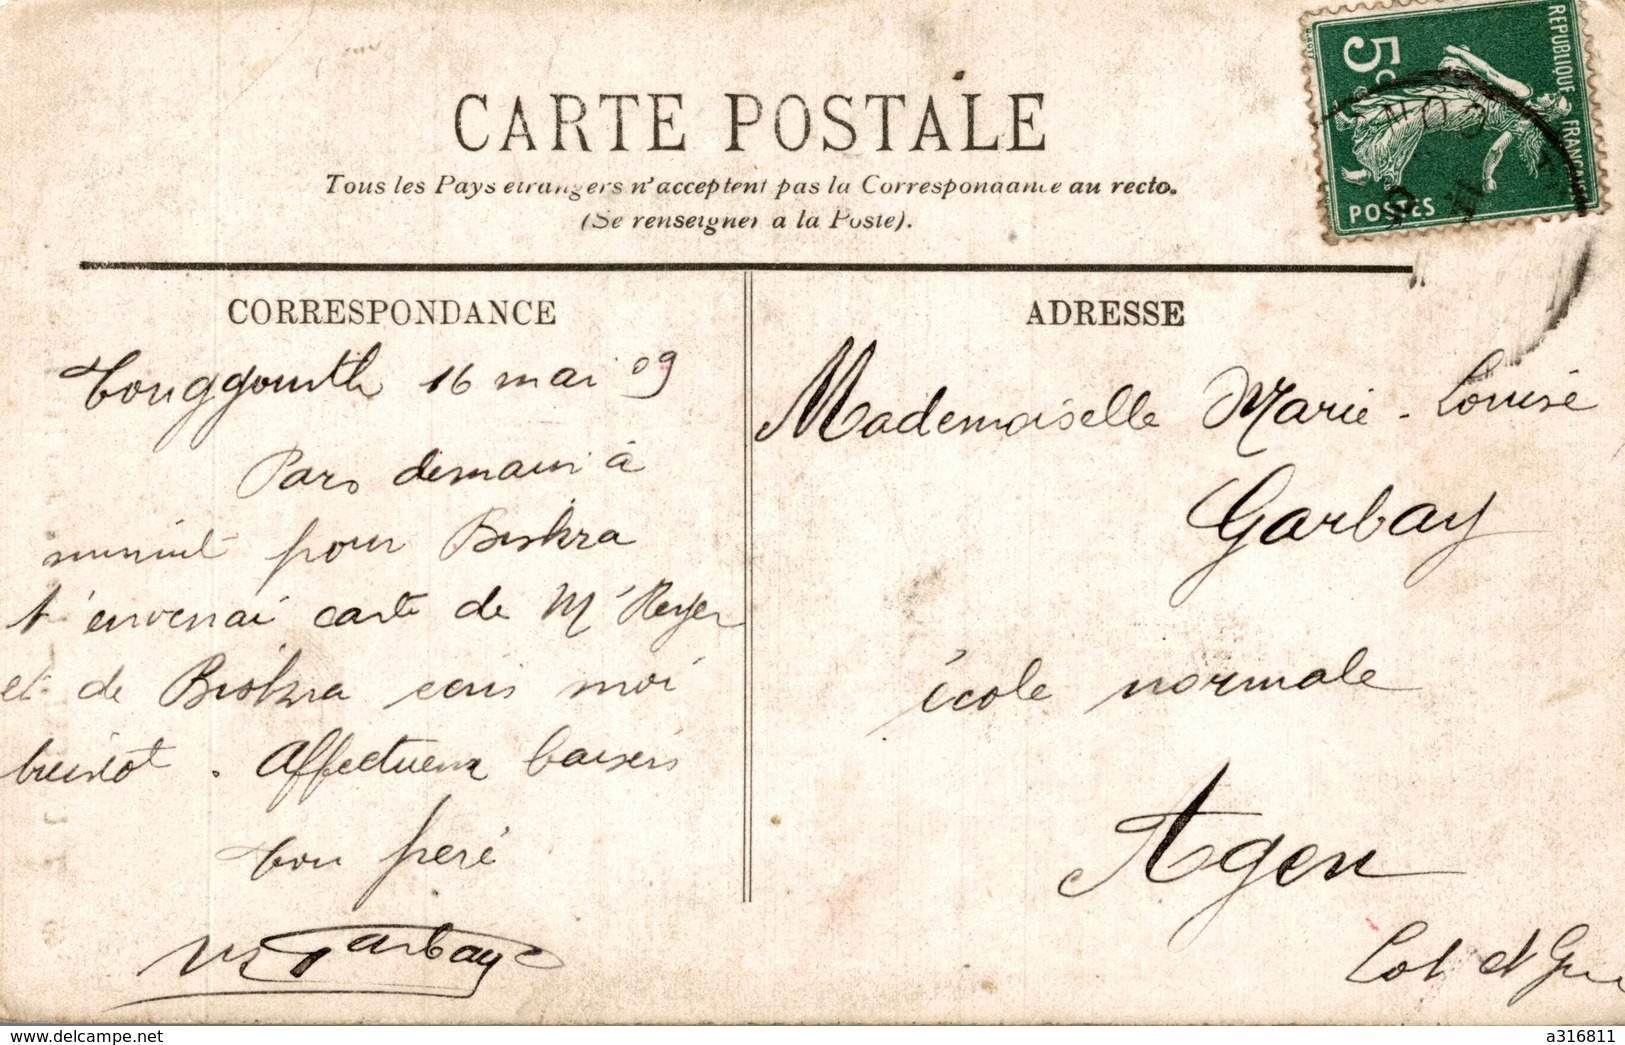 CARTE POSTALE
Tous les Pays etrangers n'acceptent pas la Correspondance au recto.
(Se renseigner a la Poste).
5c
REPUBLIQUE FRANÇAISE
POSTES
CON
CORRESPONDANCE
Touggourth 16 mai 09
Pars demain à
minuit pour Biskra
t'enverrai carte de Mr Reyer
et de Biskra ecris moi
bientot. Affectueux baisers
ton frère
Garbay
ADRESSE
Mademoiselle Marie-Louise
Garbay
école normale
Agen
Lot et Ga
a316811